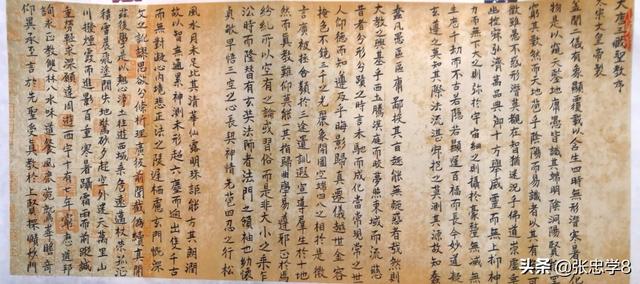 大唐三藏聖教序
太宗文皇帝製
蓋聞二儀有象顯覆載以含生四時無形潛寒暑以化
物是以窺天鑒地庸愚皆識其端明陰洞陽賢哲罕
窮其數然而天地苞乎陰陽而易識者以其有
歟雖愚不惑形潛莫覩在智猶迷況乎佛道崇虛
控寂弘濟萬品典御十方舉威靈而無上抑神
力而無下大之則彌於宇宙細之則攝於豪釐無滅無
生歷千劫而不古若隱若顯運百福而長今妙道凝
玄遵之莫知其際法流湛寂挹之莫測其源故知蠢
蠢凡愚區區庸鄙投其旨趣能無疑惑者哉然則
大教之興基乎西土騰漢庭而皎夢照東域而流慈
昔者分形分跡之時言未馳而成化當常現常之世
人仰德而知遵及乎晦影歸真遷儀越世金容
掩色不鏡三千之光麗象開圖空端四八之相於是微
言廣被拯含類於三途遺訓遐宣導群生於十地
然而真教難仰莫能一其指歸曲學易遵邪正於焉
紛糺所以空有之論或習俗而是非大小之乘乍
沿時而隆替有玄奘法師者法門之領袖也幼懷
貞敏早悟三空之心長契神情先苞四忍之行松
風水月未足比其清華仙露明珠詎能方其朗潤
故以智無通累神測未形超六塵而迥出隻千古
而無對凝心內境悲正法之陵遲栖慮玄門慨深
文之訛謬思欲分條析理廣彼前聞截偽續真開
茲後學是以翹心淨土往遊西域乘危遠邁杖策孤征
積雪晨飛塗間失地驚砂夕起空外迷天萬里山
川撥煙霞而進影百重寒暑躡霜雨而前蹤誠
重勞輕求深願達周遊西宇十有七年窮歷道邦
詢求正教雙林八水味道餐風鹿菀鷲峰瞻奇
仰異承至言於先聖受真教於上賢探賾妙門
头条 @张忠学8